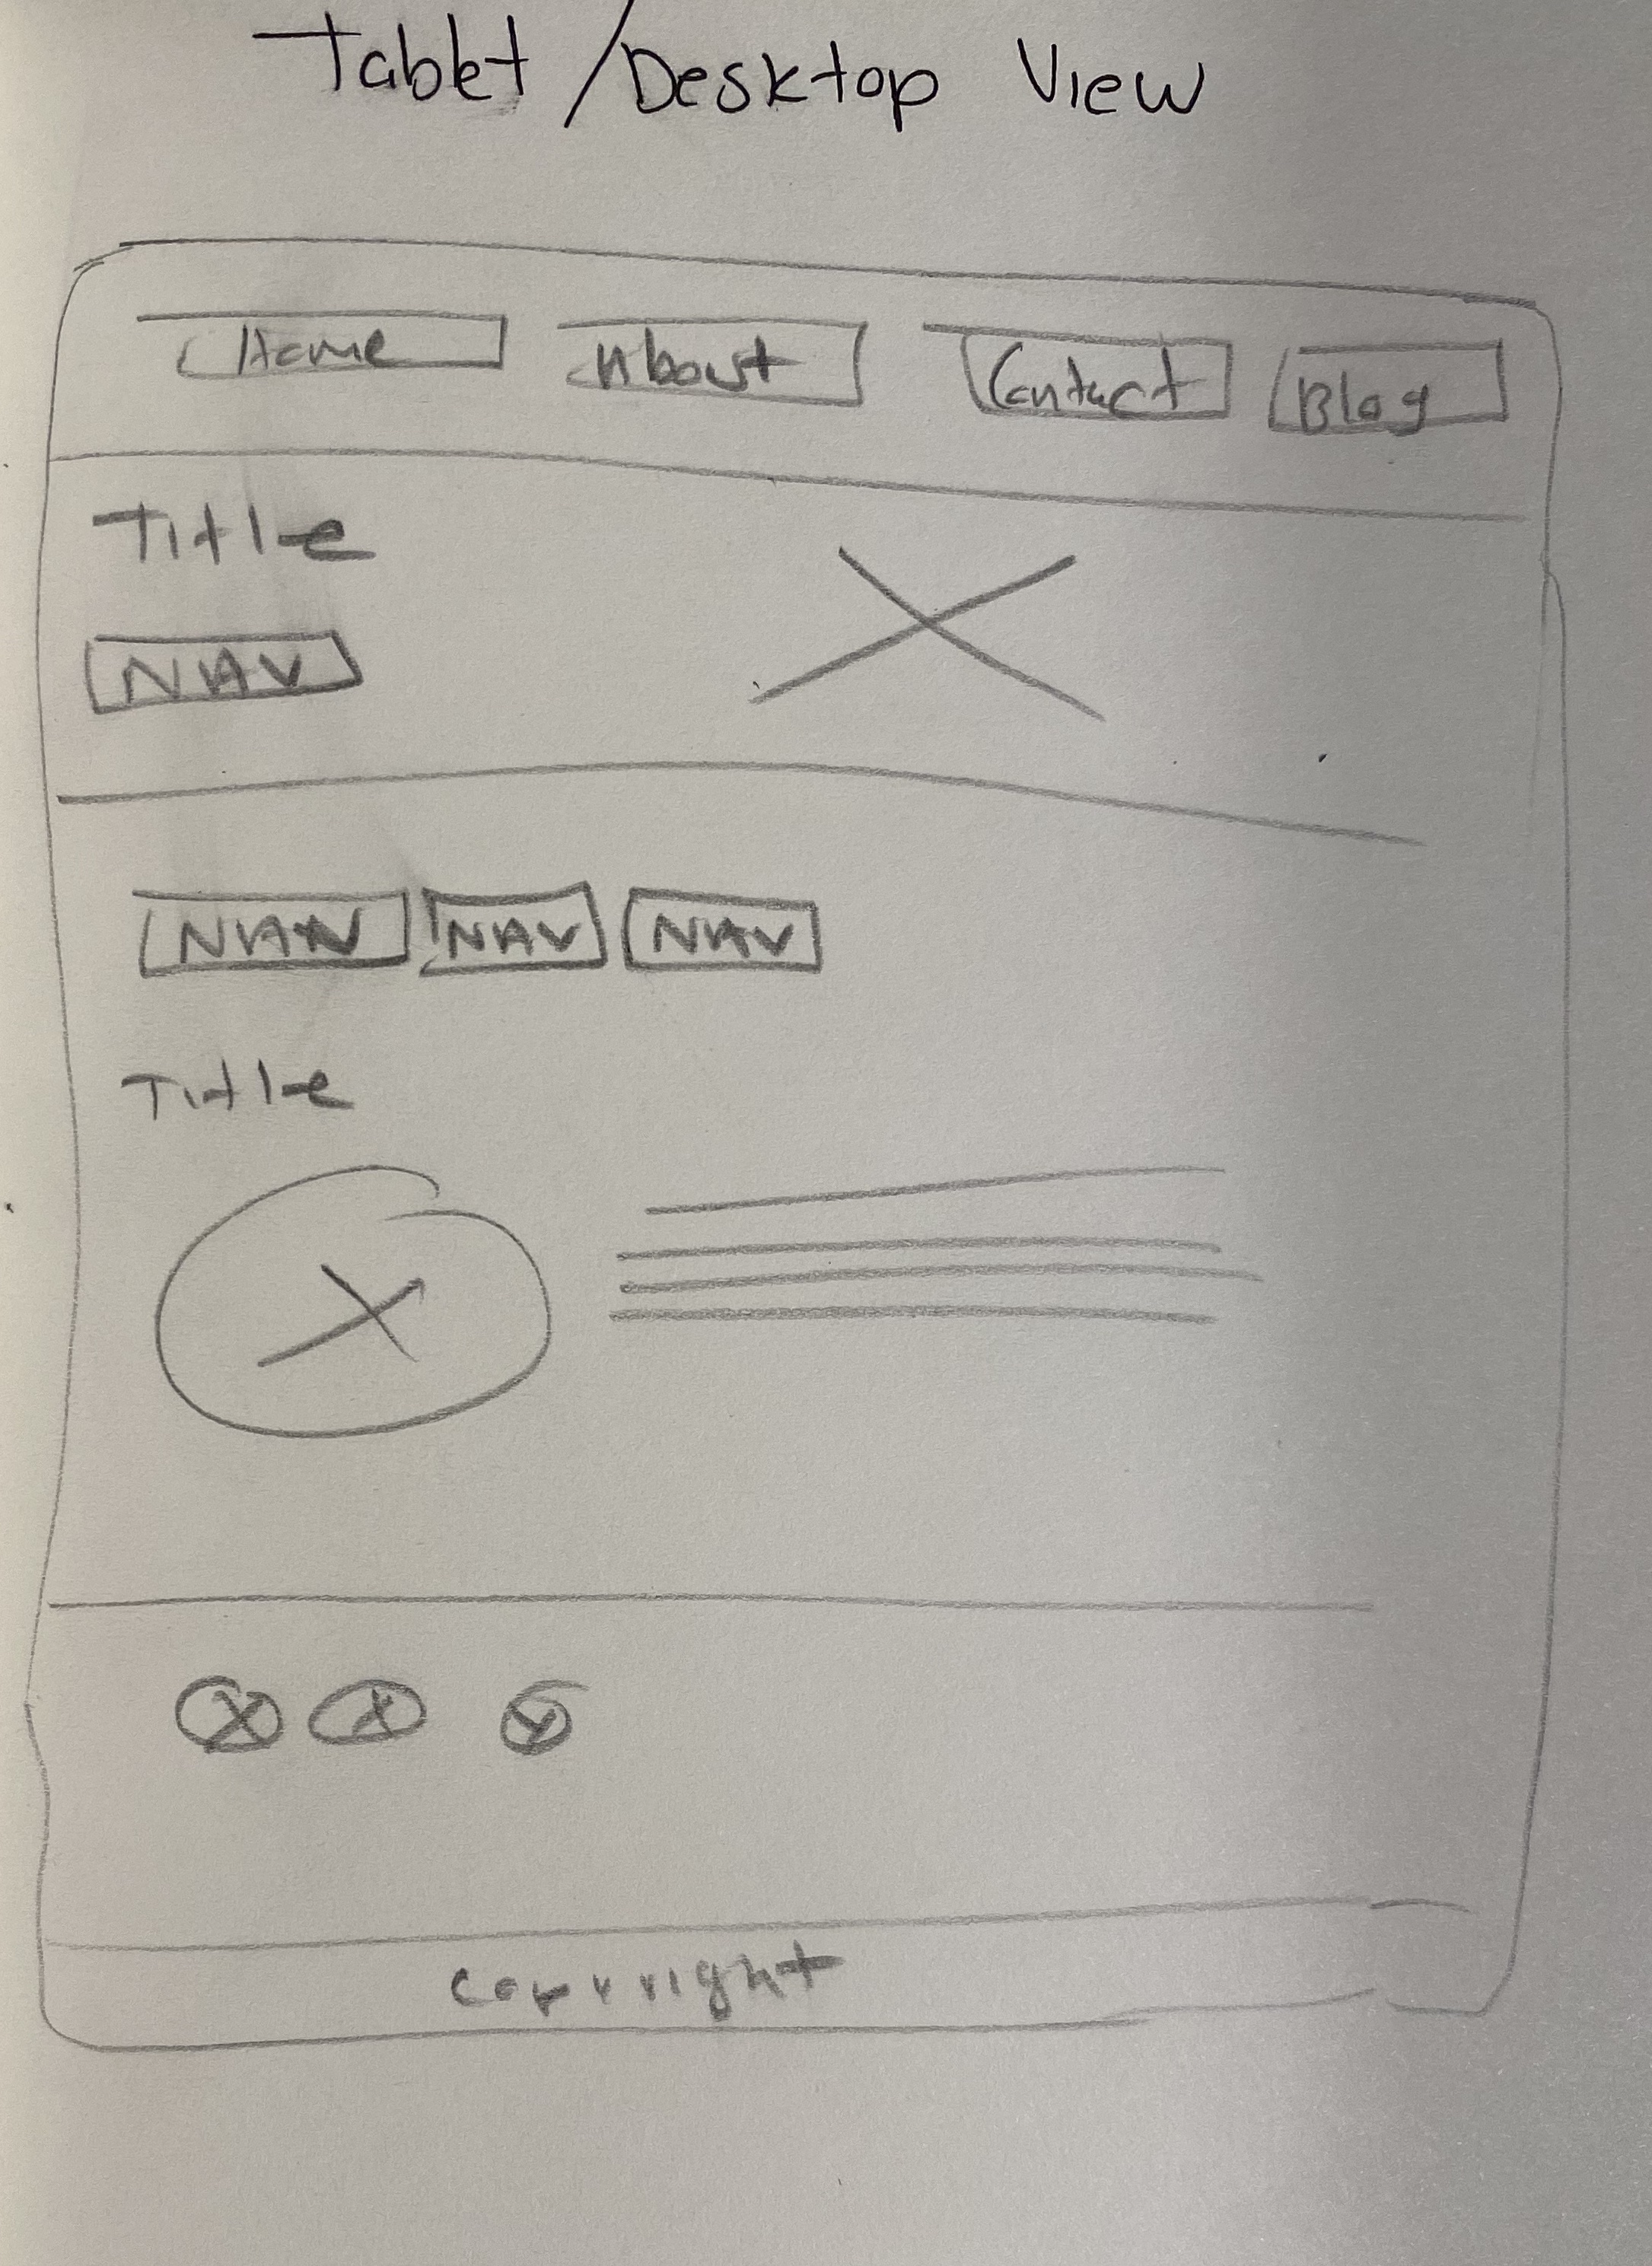 Tablet / Desktop View
Home About Contact Blog
Title
NAV
NAV NAV NAV
Title
Copyright